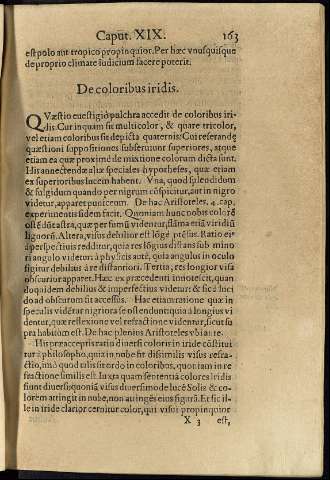 Caput. XIX. 163
est polo aut tropico propinquior. Per hæc vnusquisque
de proprio climate iudicium facere poterit.
De coloribus iridis.
QVæstio e vestigiò pulchra accedit de coloribus iri-
dis. Cur inquam sit multicolor, & quare tricolor,
vel etiam coloribus sit depicta quaternis: Cui referandę
quæstioni suppositiones subseruiunt superiores, atque
etiam ea quæ proximè de mixtione colorum dicta sunt.
His annectendæ aliæ speciales hypotheses, quæ etiam
ex superioribus lucem habent. Vna, quod splendidum
& fulgidum quando per nigrum cōspicitur, aut in nigro
videtur, apparet puniceum. De hac Aristoteles. 4. cap.
experimentis fidem facit. Quoniam hunc nobis colorē
ostēdūt astra, quæ per fumū videntur, flāma etiā viridiū
lignorū. Altera, visus debilior est lōgè ptēsus. Ratio es-
à perspectiuis redditur, quia res lōgius distans sub mino
ri angulo videtur: à physicis autē, quia angulus in oculo
figitur debilius à re distantiori. Tertia, res longior visa
obscurior apparet. Hæc ex præcedenti innotescit, quan
doquidem debilius & imperfectius videtur: & sic à luci
do ad obscurum fit accessus. Hac etiam ratione quæ in
speculis vidētur nigriora se ostendunt: quia à longius vi
dentur, quæ reflexione vel refractione videntur, sicut su
pra habitum est. De hac plenius Aristoteles vbi a te.
His præacceptis ratio diuersi coloris in iride cōstitui
tur à philosopho, quia in nube fit dissimilis visus refra-
ctio, modò quod talis sit ordo in coloribus, quoniam in re
fractione similis est. Iuxta quam sententiā colores iridis
fiunt diuersi, quoniā visus diuersimodè lucē Solis & co-
lorem attingit in nube, non attingēs eius figurā. Et sic il-
le in iride clarior cernitur color, qui visui propinquior
X 3 est,